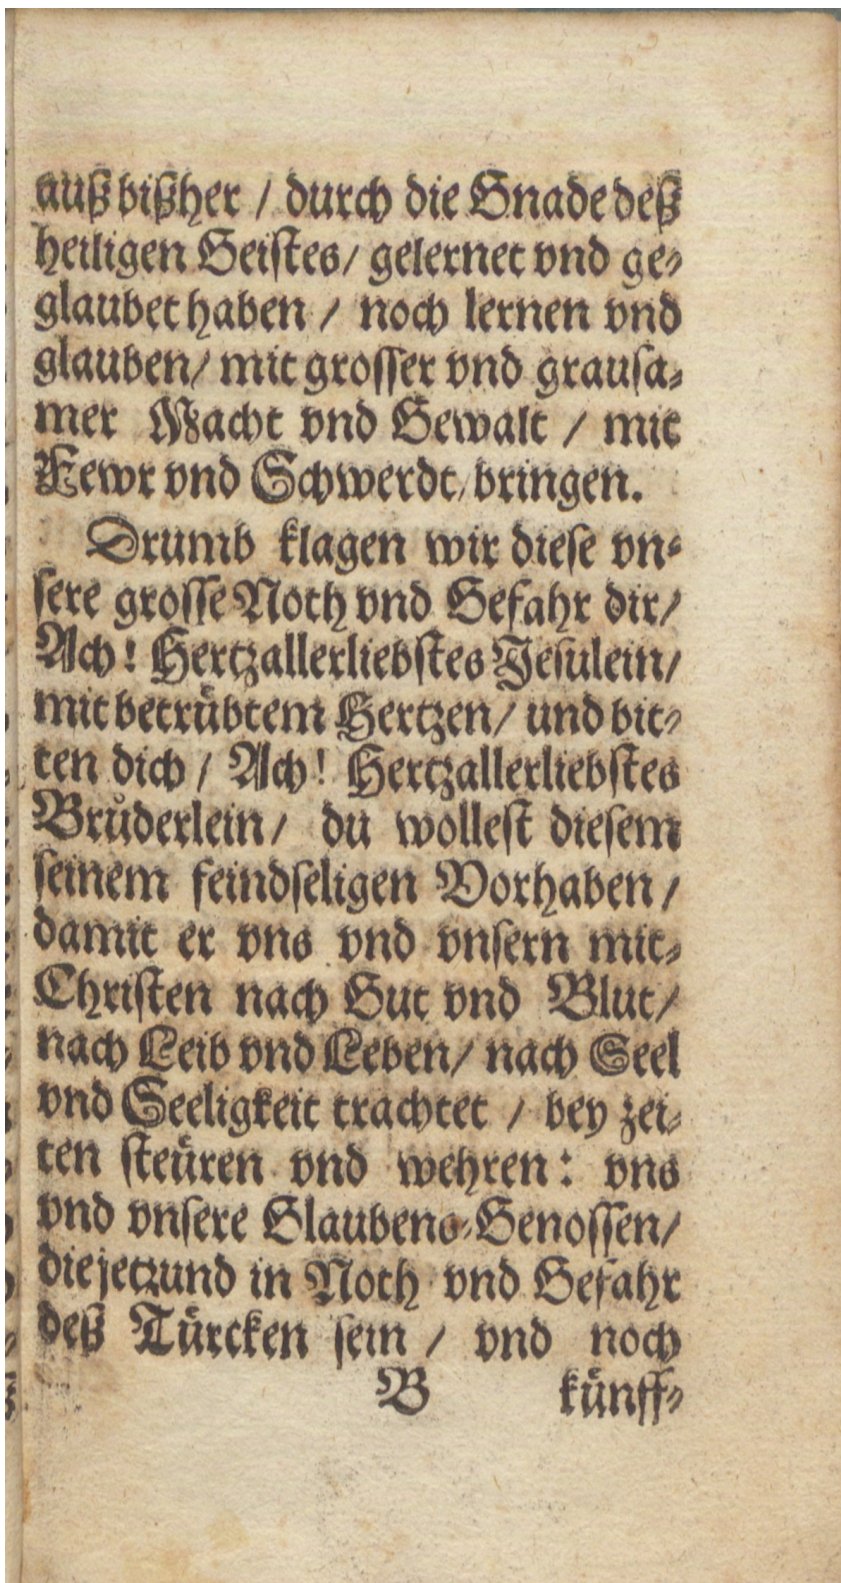 auß bißher / durch die Gnade deß
heiligen Geistes / gelernet vnd ge-
glaubet haben / noch lernen vnd
glauben / mit grosser vnd grausa-
mer Macht vnd Gewalt / mit
Fewr vnd Schwerdt / bringen.
Drumb klagen wir diese vn-
sere grosse Noth vnd Gefahr dir /
Ach! Hertzallerliebstes Jesulein /
mit betrübtem Hertzen / und bit-
ten dich / Ach! Hertzallerliebstes
Bruͤderlein / du wollest diesem
seinem feindseligen Vorhaben /
damit er vns vnd vnsern mit-
Christen nach Gut vnd Blut /
nach Leib vnd Leben / nach Seel
vnd Seeligkeit trachtet / bey zei-
ten steüren vnd wehren: vns
vnd vnsere Glaubens-Genossen /
die jetzund in Noth vnd Gefahr
deß Türcken sein / vnd noch
B künff-